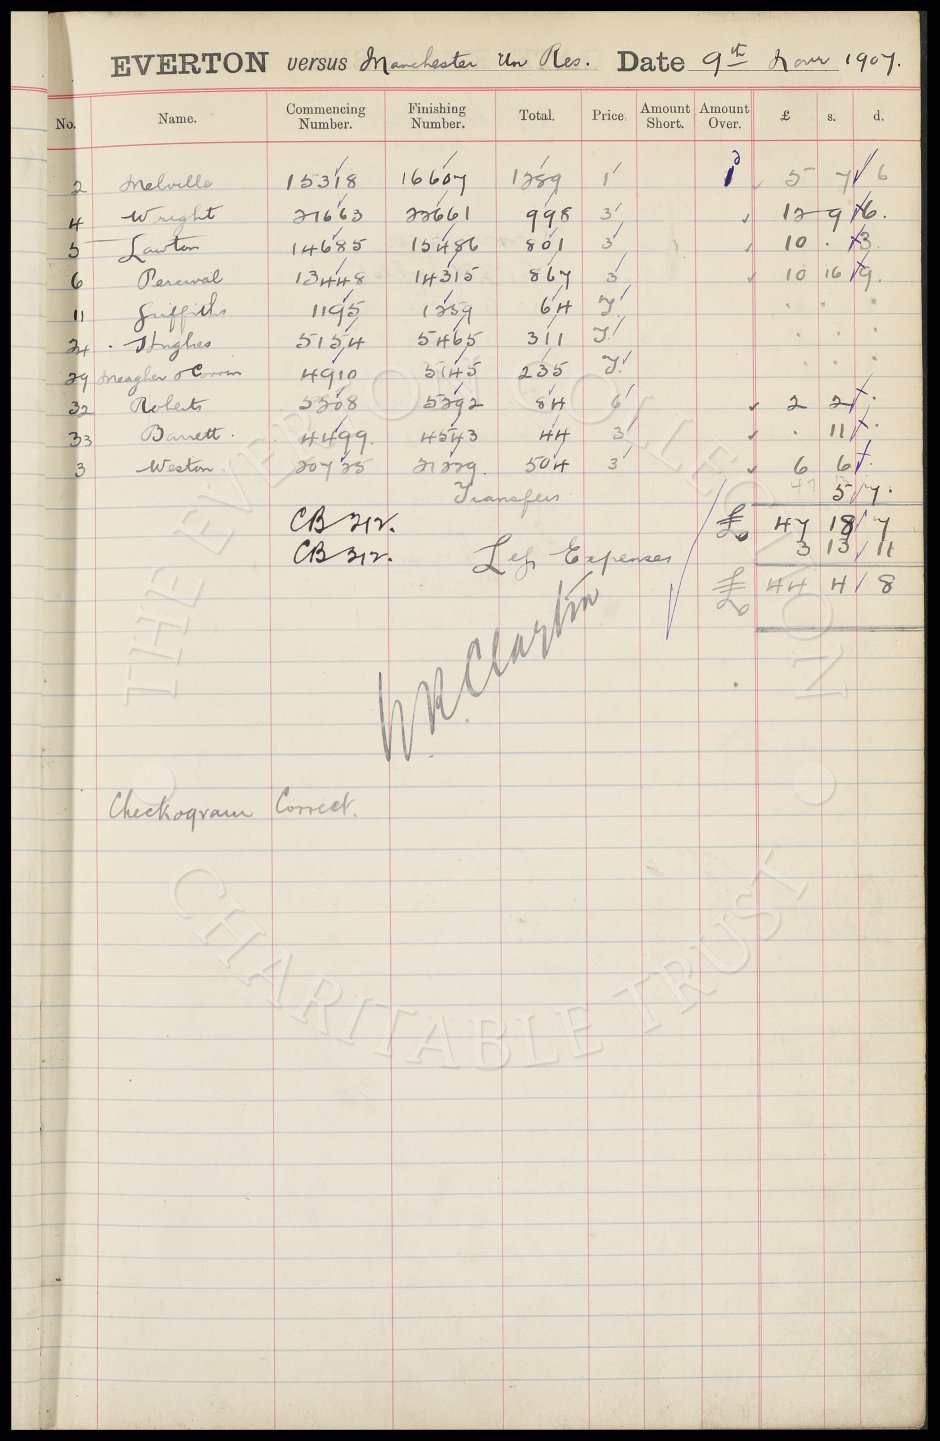 EVERTON versus Manchester Un Res. Date 9th Novr 1907.
No. Name. Commencing Number. Finishing Number. Total. Price. Amount Short. Amount Over. £ s. d.
2 Melville 15318 16607 1289 1 1d 5 7 6
4 Wright 21663 22661 998 3 12 9 6.
5 Lawton 14685 15486 801 3 10 . 3
6 Percival 13448 14315 867 3 10 16 9.
11 Griffiths 1195 1259 64 T. . . .
24 Hughes 5154 5465 311 T. . . .
29 Meagher & Corrin 4910 5145 235 T. . . .
32 Roberts 5208 5292 84 6 2 2 .
33 Barrett. 4499. 4543 44 3 . 11 .
3 Weston 20725 21229. 504 3 6 6 .
Transfers 5 7.
CB 212. £ 47 18 7
CB 312. Less Expenses 3 13 11
£ 44 4 8
W.R. Clayton
Checkogram Correct.
THE EVERTON COLLECTION
CHARITABLE TRUST